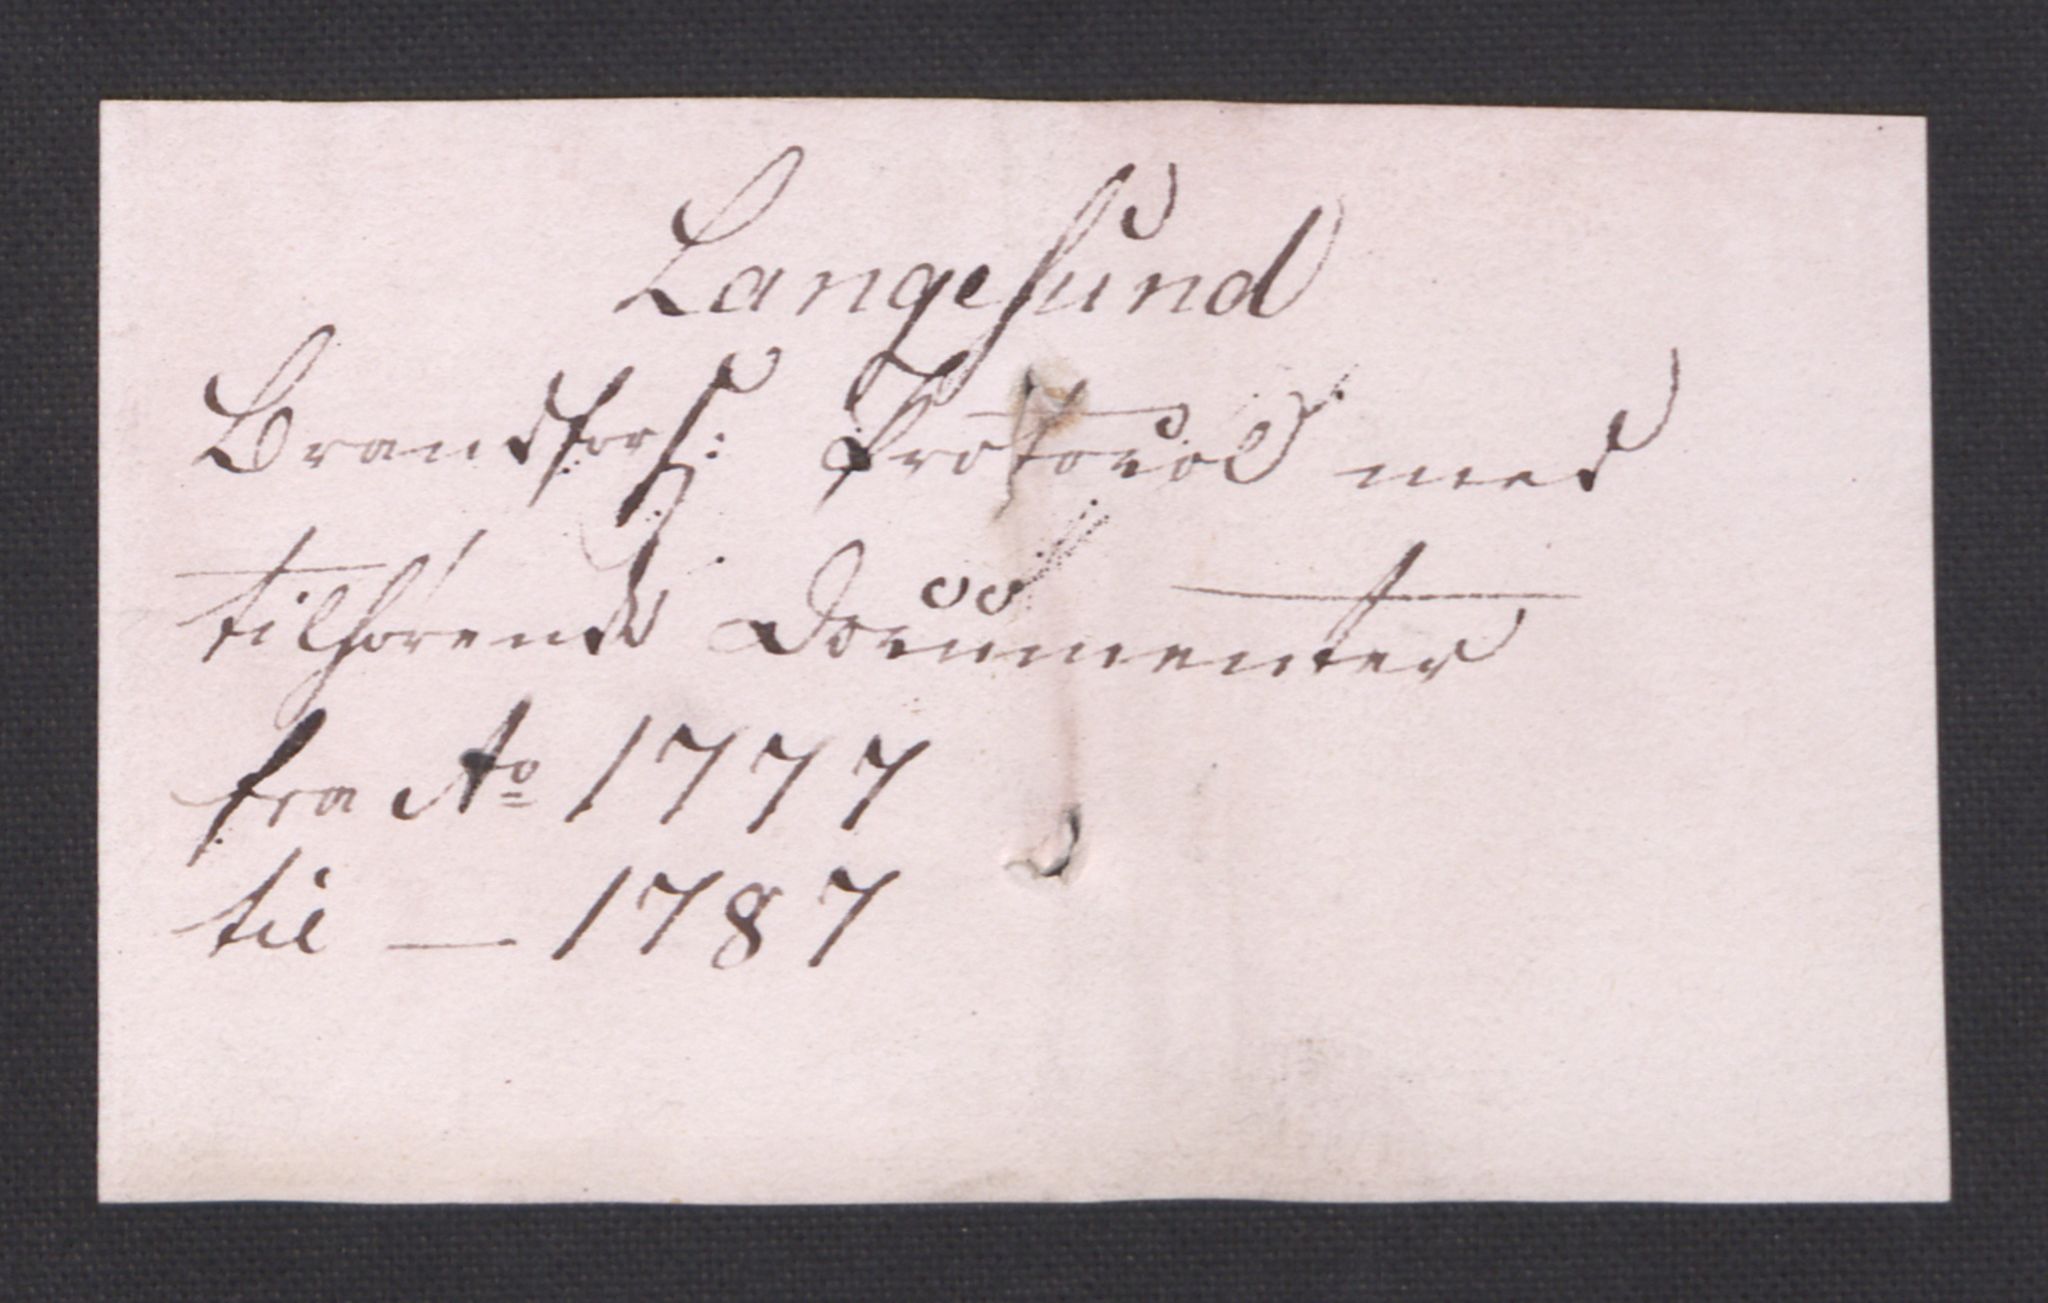 Langesund
Brandfors: Protocol med
tilhørende Documenter
fra Ao 1777
til — 1787